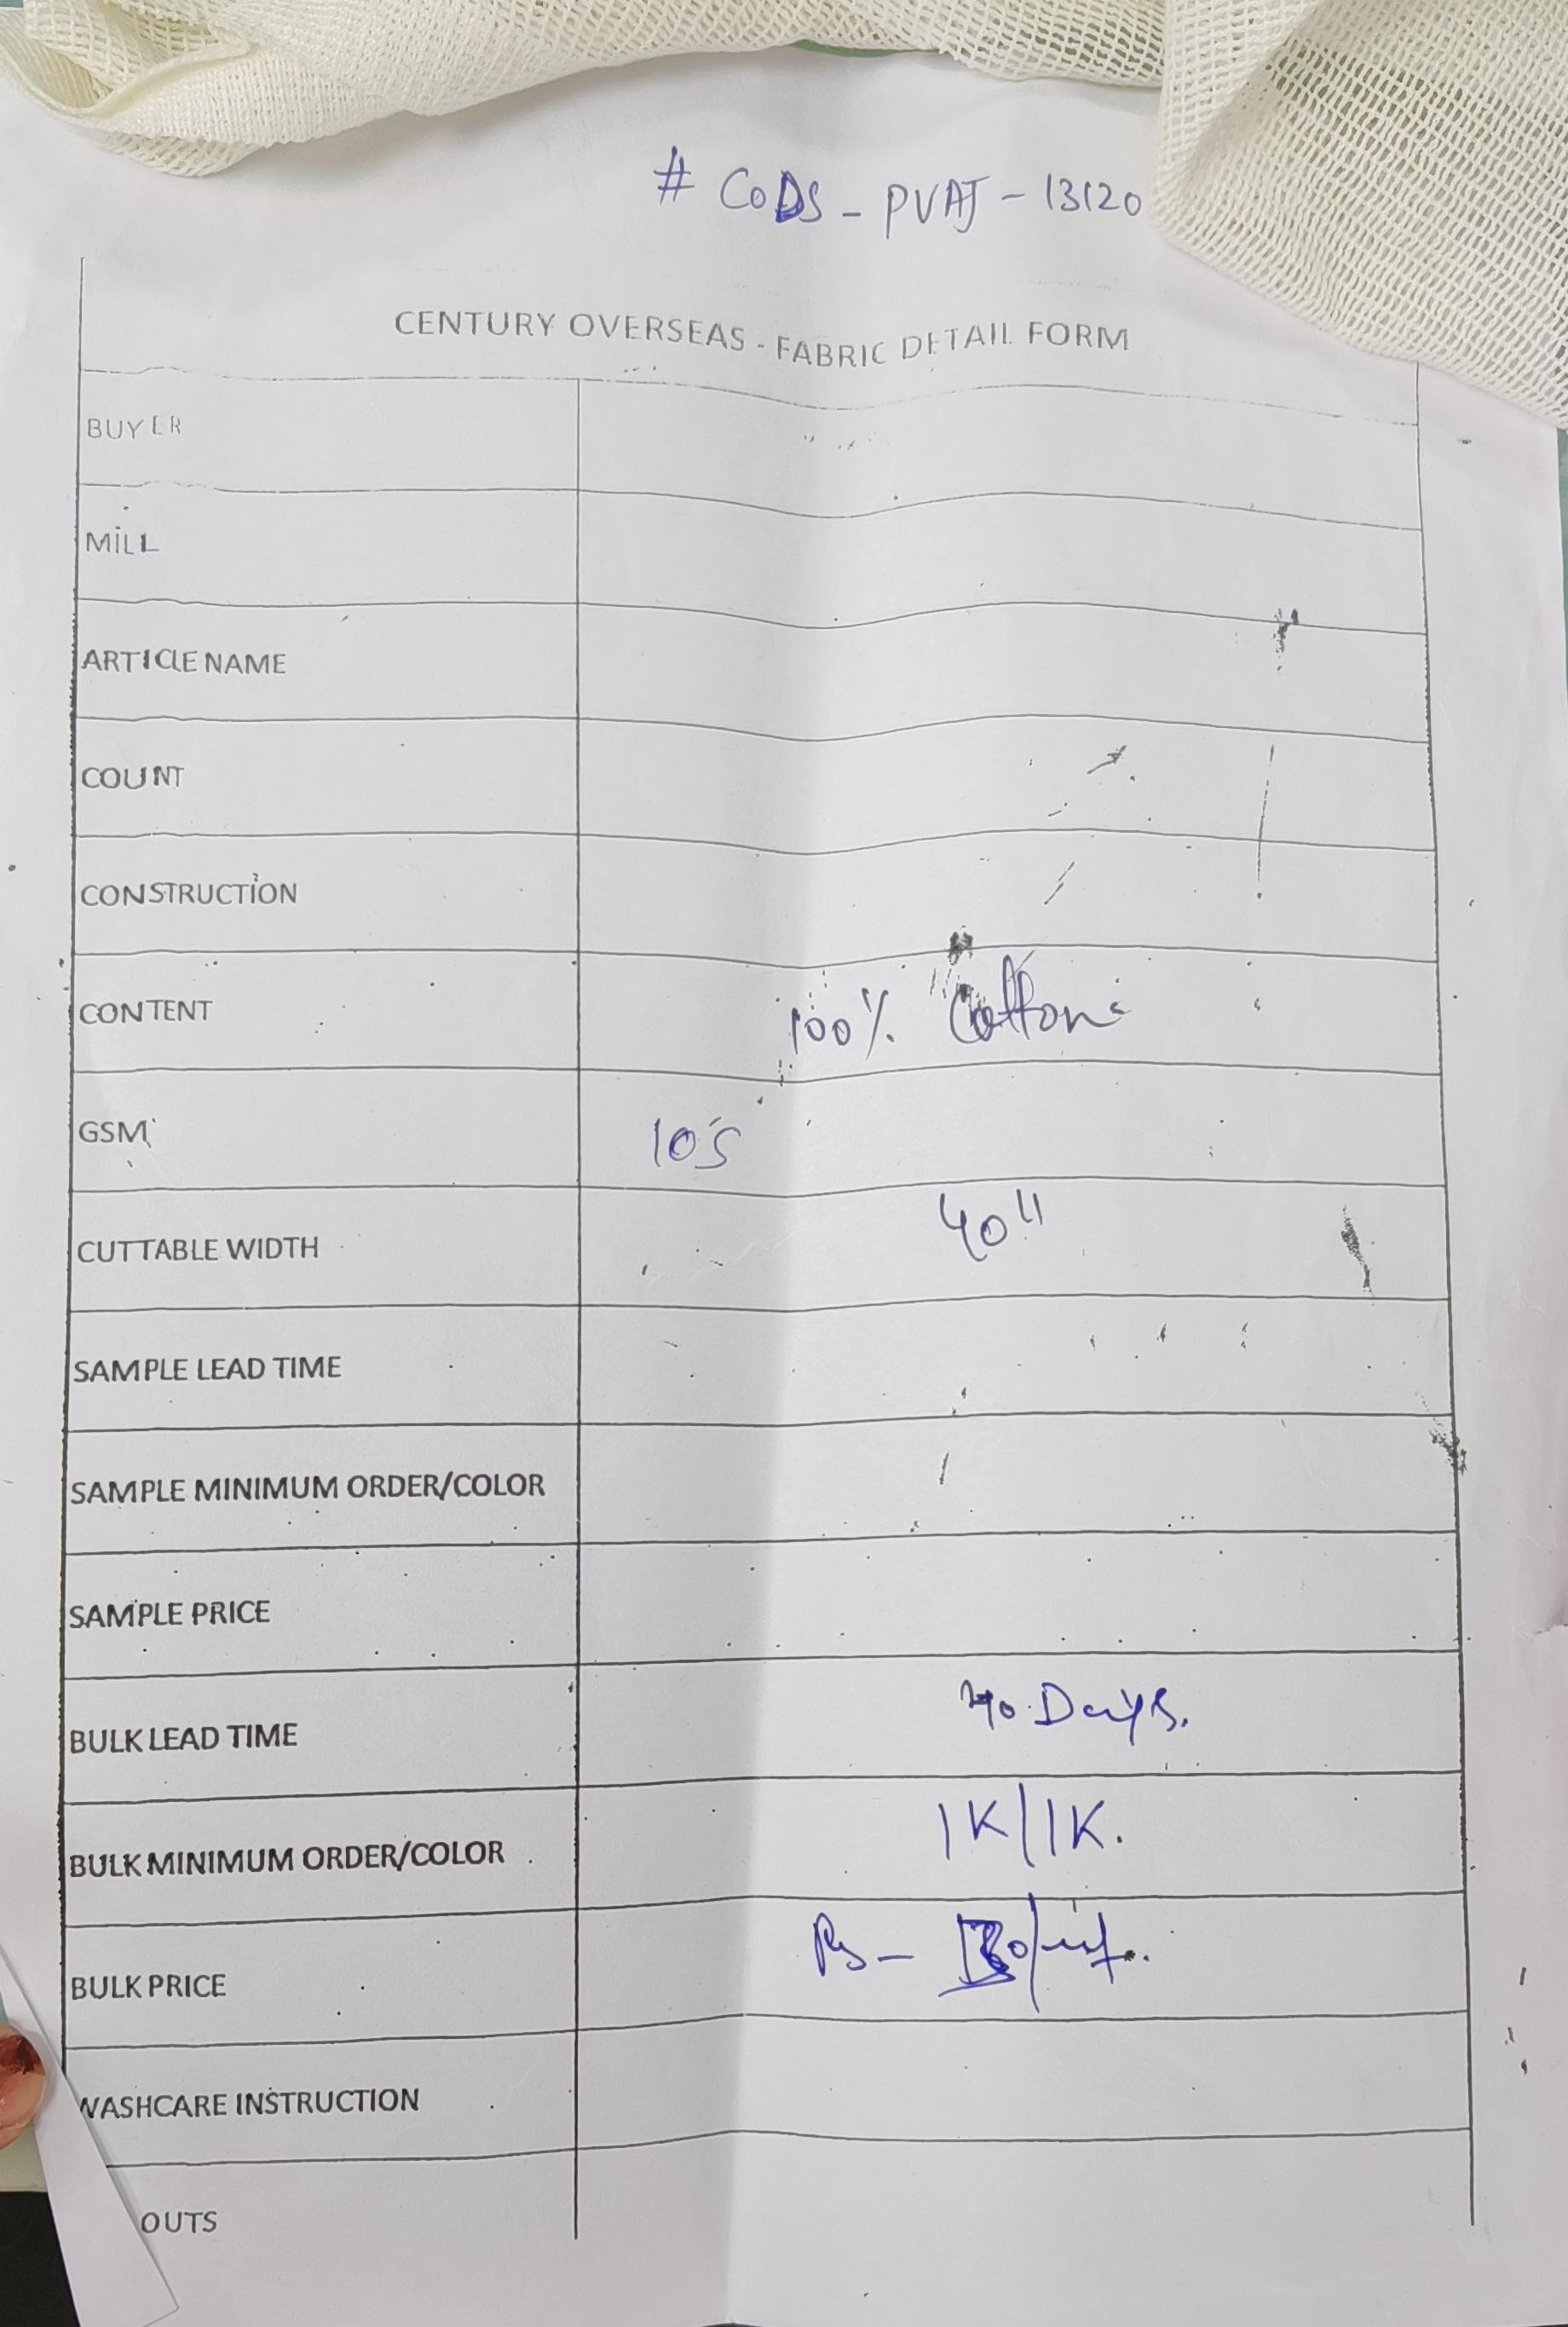 # CODS - PVAJ - 13120
CENTURY OVERSEAS - FABRIC DETAIL FORM
BUYER
MILL
ARTICLE NAME
COUNT
CONSTRUCTION
CONTENT 100% Cotton
GSM 10's
CUTTABLE WIDTH 40"
SAMPLE LEAD TIME
SAMPLE MINIMUM ORDER/COLOR
SAMPLE PRICE
BULK LEAD TIME Days.
BULK MINIMUM ORDER/COLOR 1K/1K.
BULK PRICE Rs -
WASHCARE INSTRUCTION
OUTS